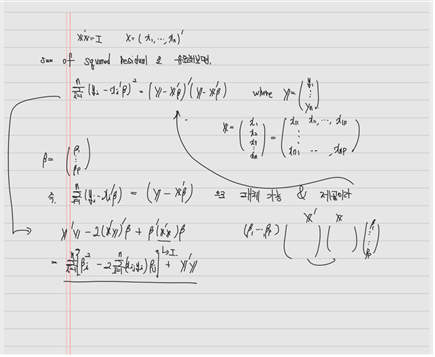 X'X = I   X = (x₁, ..., xₙ)'
sum of squared residual
Σᵢ₌₁ⁿ (yᵢ - xᵢ'β)² = (Y - X'β)'(Y - X'β)   where Y = (y₁ ⋮ yₙ)
X = (x₁ x₂ x₃ ⋮ xₙ) = (x₁₁ x₁₂, ..., x₁ₚ ⋮ xₙ₁, ..., xₙₚ)
β = (β₁ ⋮ βₚ)
즉, Σᵢ₌₁ⁿ (yᵢ - xᵢ'β) = (Y - X'β) 으로 대체 가능 & 제곱이다
Y'Y - 2(X'Y)'β + β'(X'X)β   (β₁, ..., βₚ) ( X' ) ( X ) (β₁ ⋮ βₚ)
↳ I
βⱼ² - 2 Σᵢ₌₁ⁿ (xᵢⱼyᵢ) βⱼ ] + Y'Y